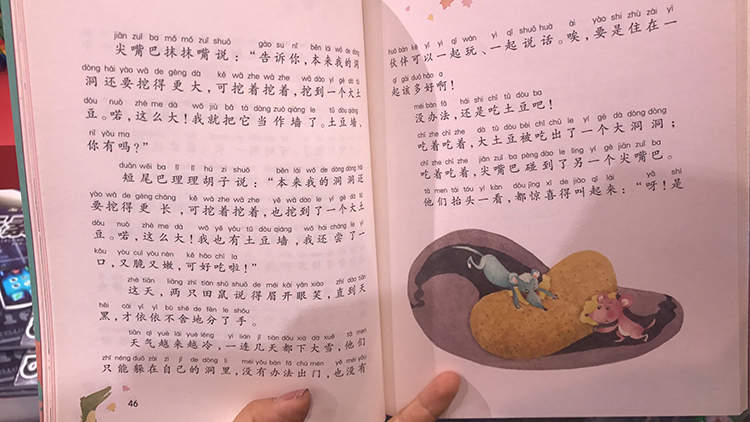 jiān zuǐ ba mǒ mǒ zuǐ shuō gào su nǐ běn lái wǒ de dòng
尖嘴巴抹抹嘴说：“告诉你，本来我的洞
dòng hái yào wā de gèng dà kě wā zhe wā zhe wā dào yí gè dà tǔ
洞还要挖得更大，可挖着挖着，挖到一个大土
dòu nuò zhè me dà wǒ jiù bǎ tā dàng zuò qiáng le tǔ dòu qiáng
豆。喏，这么大！我就把它当作墙了。土豆墙，
nǐ yǒu ma
你有吗？”
duǎn wěi ba lǐ lǐ hú zi shuō běn lái wǒ de dòng dòng hái
短尾巴理理胡子说：“本来我的洞洞还
yào wā de gèng cháng kě wā zhe wā zhe yě wā dào le yí gè dà tǔ
要挖得更长，可挖着挖着，也挖到了一个大土
dòu nuò zhè me dà wǒ yě yǒu tǔ dòu qiáng wǒ hái cháng le yì
豆。喏，这么大！我也有土豆墙，我还尝了一
kǒu yòu cuì yòu nèn kě hǎo chī la
口，又脆又嫩，可好吃啦！”
zhè tiān liǎng zhī tián shǔ shuō de méi kāi yǎn xiào zhí dào tiān
这天，两只田鼠说得眉开眼笑，直到天
hēi cái yī yī bù shě de fēn le shǒu
黑，才依依不舍地分了手。
tiān qì yuè lái yuè lěng yì lián jǐ tiān dōu xià dà xuě tā men
天气越来越冷，一连几天都下大雪，他们
zhǐ néng duǒ zài zì jǐ de dòng lǐ méi yǒu bàn fǎ chū mén yě méi yǒu
只能躲在自己的洞里，没有办法出门，也没有
46
huǒ bàn kě yǐ yì qǐ wán yì qǐ shuō huà ài yào shi zhù zài yì
伙伴可以一起玩、一起说话。唉，要是住在一
qǐ gāi duō hǎo a
起该多好啊！
méi bàn fǎ hái shi chī tǔ dòu ba
没办法，还是吃土豆吧！
chī zhe chī zhe dà tǔ dòu bèi chī chū le yí gè dà dòng dòng
吃着吃着，大土豆被吃出了一个大洞洞；
chī zhe chī zhe jiān zuǐ ba pèng dào le lìng yí gè jiān zuǐ ba
吃着吃着，尖嘴巴碰到了另一个尖嘴巴。
tā men tái tóu yí kàn dōu jīng xǐ de jiào qǐ lái yā shì
他们抬头一看，都惊喜得叫起来：“呀！是